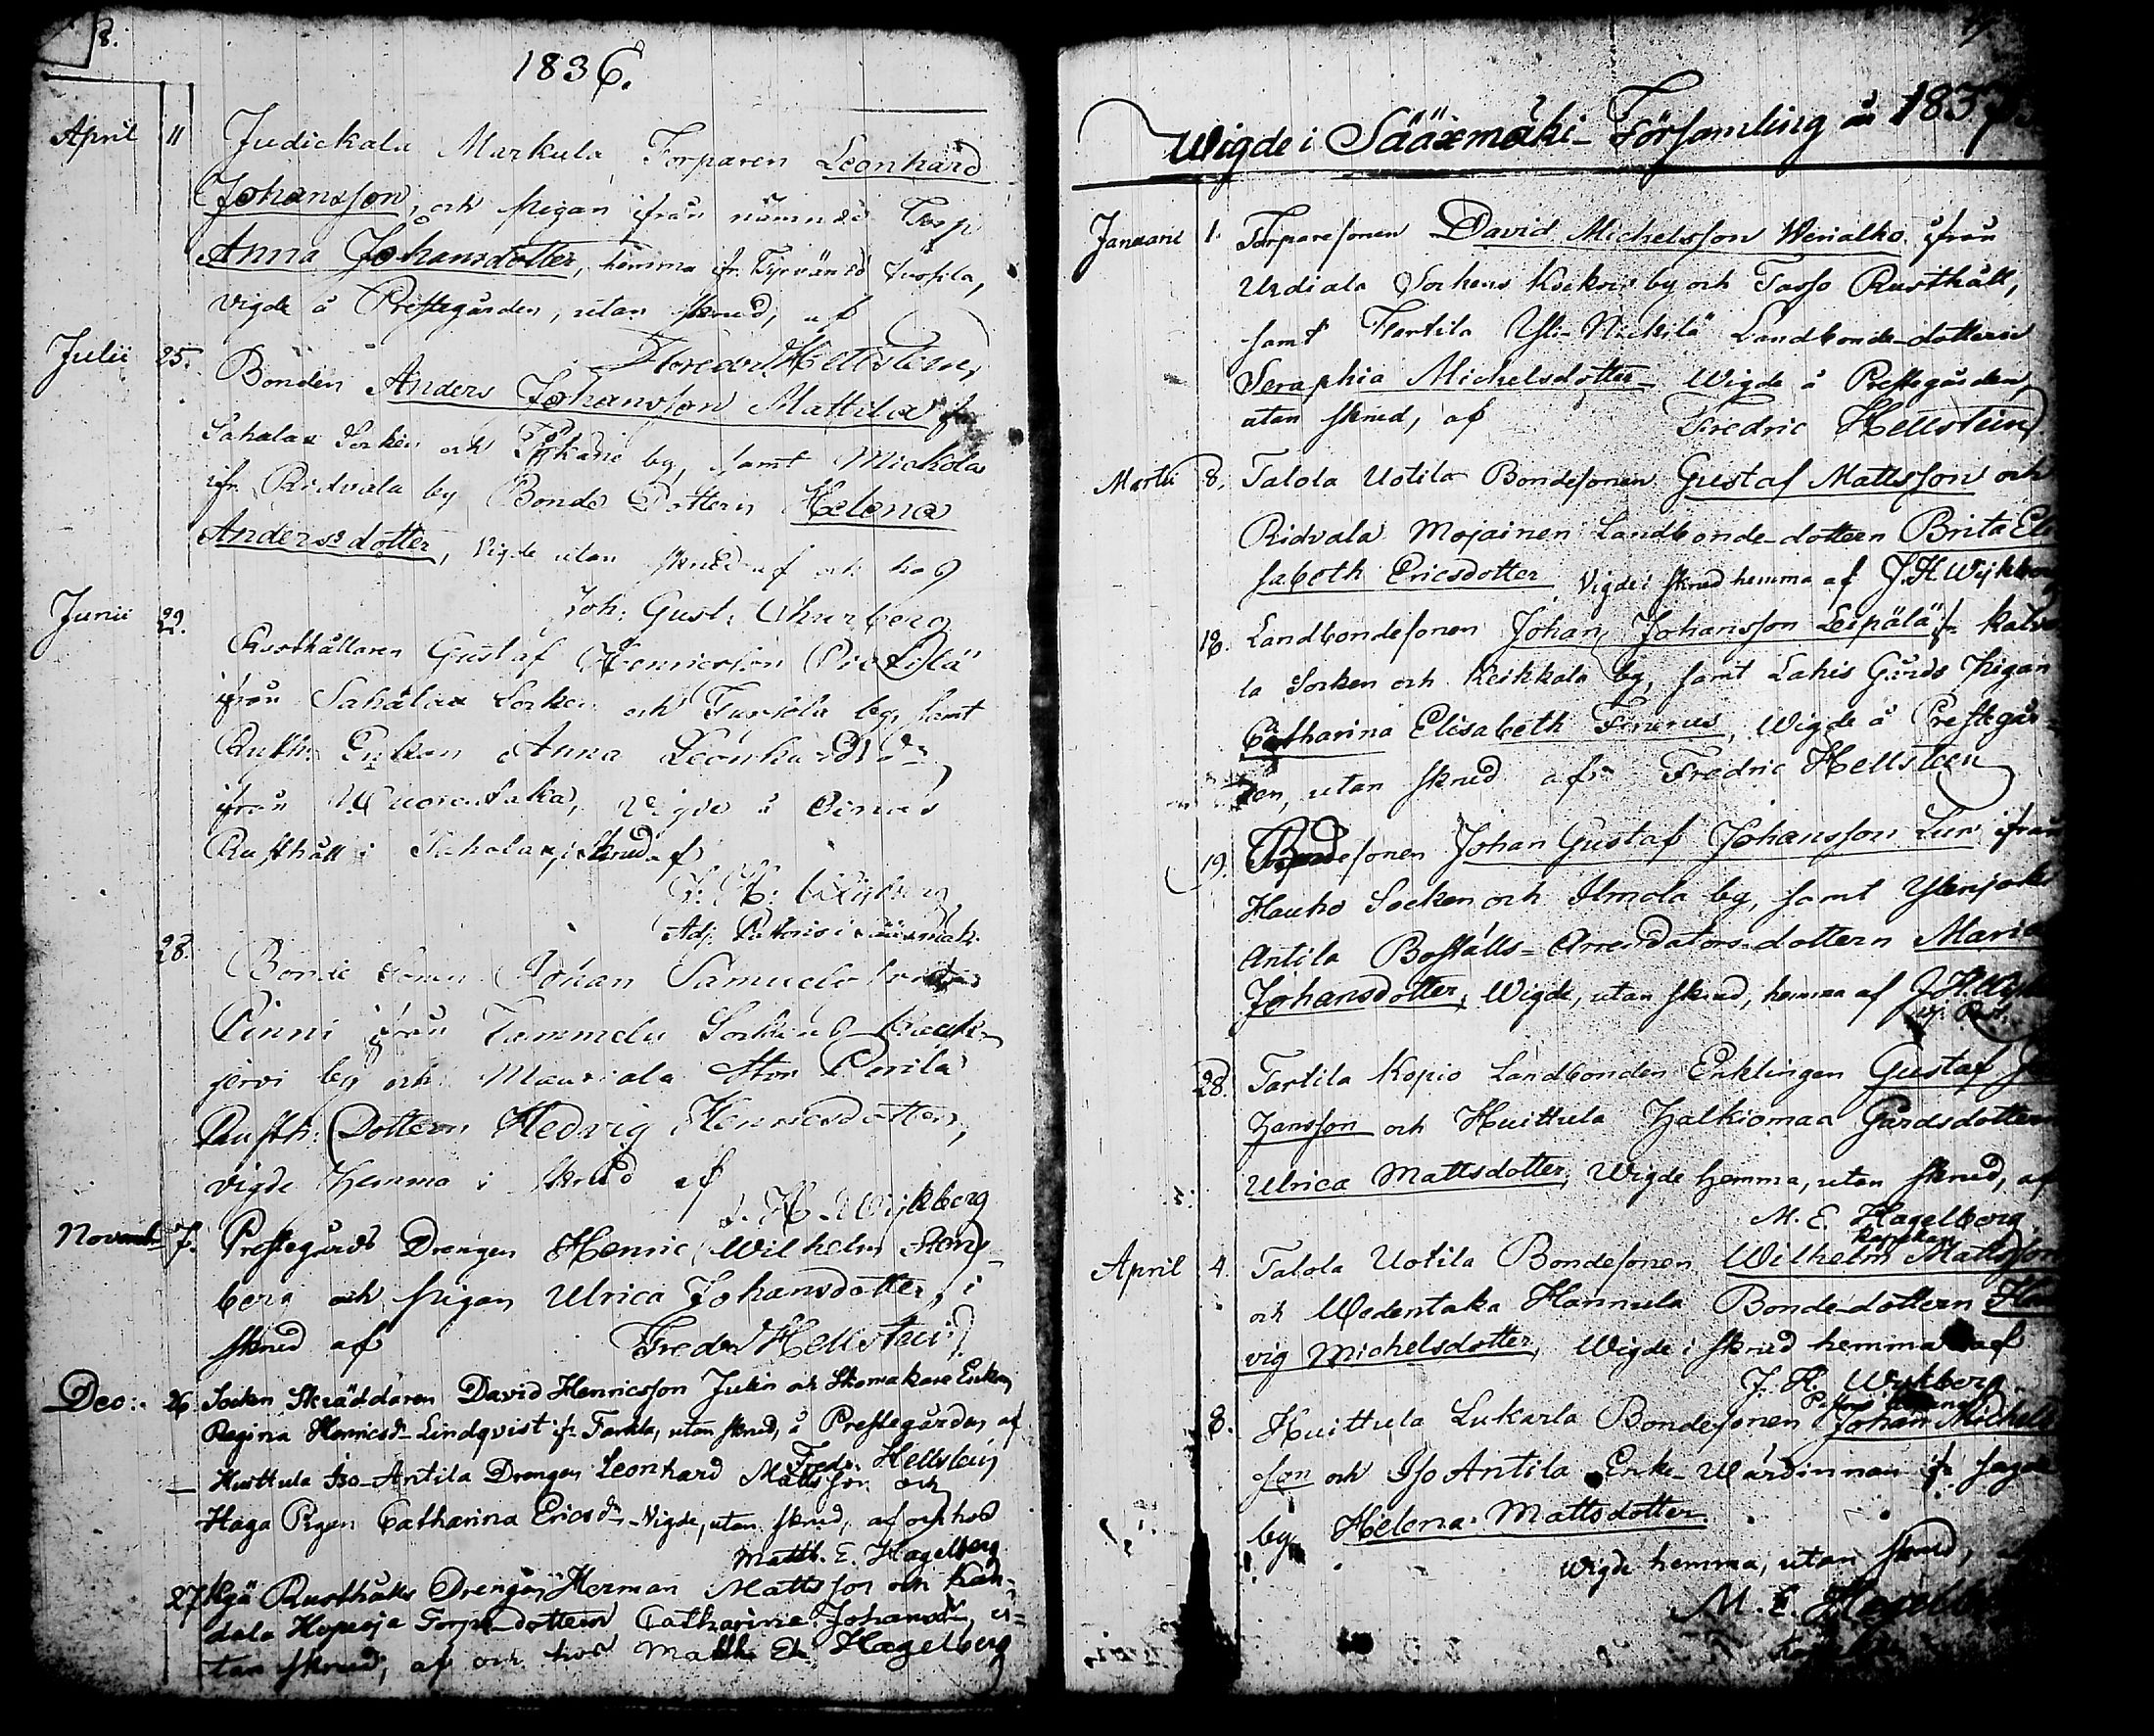 8.
1836.
April 11 Judickala Markula Torparen Leonhard
Johansson, och pigan ifrån nämnde Torp
Anna Johansdotter, hemma ifr. Tyrvändö
vigde å Prestegården, utan skrud, af
Fredric Hellsteen,
Julii 25. Bonden Anders Johansson Mattila ifr
Sahalax Sorken och by, samt Mickola
ifr. Ridvala by Bonde Dottern Helena
Andersdotter, Vigde utan skrud af och hos
Joh: Gust: Churberg
Junii 22. Rusthållaren Gustaf Henricsson
ifrån Sahalax Sorken och by, samt
Rusth: Enkan Anna Leonhardsdr
ifrån Wuorentaka, vigde å
Rusthåll i Sahalax, i Skrud af
J. H. Wijkberg
Adj: Pastoris i Sääxmäki
28. Bonde Sonen Johan Samuelsson
Pinni ifrån Tammela Sorken och
jervi by och Mauriala Stor Perila
Rusth: Dottern Hedvig Henricsdotter,
vigde Hemma i skrud af
J. H. Wijkberg
Novemb 7. Prestegårds Drengen Henric Wilhelm Sten-
berg och pigan Ulrica Johansdotter, i
skrud af Fredr Hellsteen
Dec: 26 Socken Skräddaren David Henricsson Julin och Skomakare Enkan
Regina Henricsdr Lindqvist ifr Tarttila, utan skrud, å Prestegården af
Fredr. Hellsteen
— Huittula Iso-Antila Drengen Leonhard Mattsson och
Haga Pigan Catharina Ericsdr Vigde, utan skrud, af och hos
Matth. E. Hagelberg
27 Rusthålls Drengen Herman Mattsson och Kan-
dala Hopeoja Torpare-dottern Catharina Johansdr, u-
tan skrud, af och hos Matth. E. Hagelberg
Wigde i Sääxmäki Församling år 1837
Januarii 1. Torparesonen David Michelsson Werialho ifrån
Urdiala Sorkens by och Tasso Rusthåll,
samt Tartila Yli-Nickilä Landbonde-dottern
Seraphia Michelsdotter Wigde å Prestegården,
utan skrud, af Fredric Hellsteen
Martii 8. Talola Uotila Bondesonen Gustaf Mattsson och
Ridvala Mojainen Landbonde-dottern Brita Eli
sabeth Ericsdotter Vigde i skrud hemma af J. H. Wijkberg
18. Landbondesonen Johan Johansson Leipälä ifr Kalvo
la Sorken och Keikkala by, samt Lahis Gårds Pigan
Catharina Elisabeth, Wigde å Prestegår-
den, utan skrud af Fredric Hellsteen
19. Bondesonen Johan Gustaf Johansson ifrån
Hauho Socken och Ilmola by, samt
Antila Boställs-Arrendators-dottern Maria
Johansdotter, Wigde, utan skrud, hemma af J. H. Wijk
28. Tartila Kopio Landbonden Enklingen Gustaf
Jansson och Huittula Jalkiomaa Gårdsdottern
Ulrica Mattsdotter, Wigde hemma, utan skrud, af
M. E. Hagelberg
April 4. Talola Uotila Bondesonen Wilhelm Mattsson
och Wedentaka Hannula Bonde-dottern
vig Michelsdotter, Wigde i skrud hemma af
J. H. Wijkberg
8. Huittula Lukarla Bondesonen Johan Michels
son och Iso Antila Enke-Wärdinnan ifr
by Helena Mattsdotter
wigde hemma, utan skrud,
M. E. Hagelb